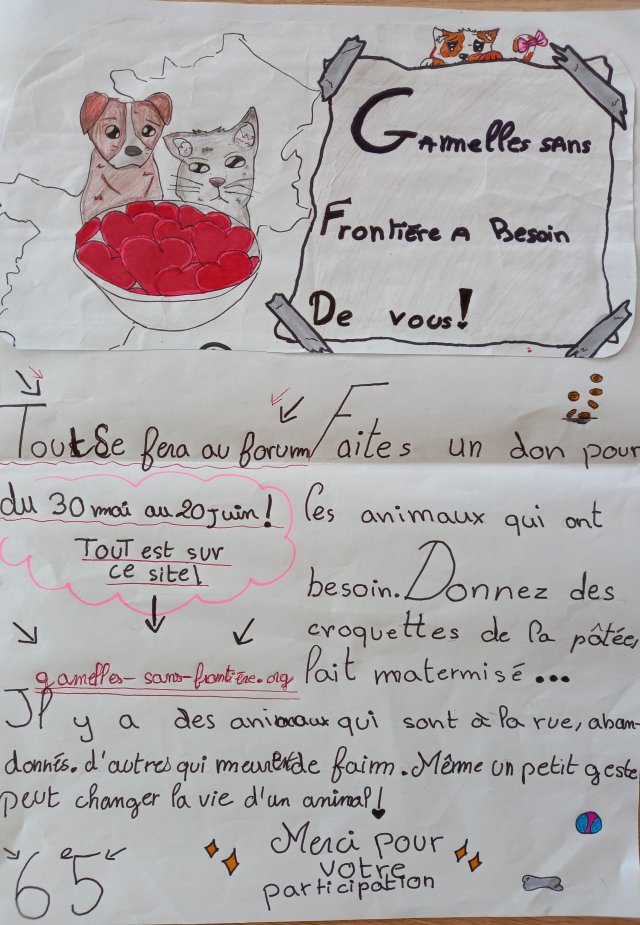 Gamelles sans
Frontière a Besoin
De vous!
Tout se fera au forum
du 30 mai au 20 juin!
Tout est sur
ce site!
gamelles-sans-frontière.org
Faites un don pour
les animaux qui ont
besoin. Donnez des
croquettes de la pâtée,
lait maternisé...
Il y a des animaux qui sont à la rue, aban-
donnés. d'autres qui meurent de faim. Même un petit geste
peut changer la vie d'un animal!
Merci pour
votre
participation
65